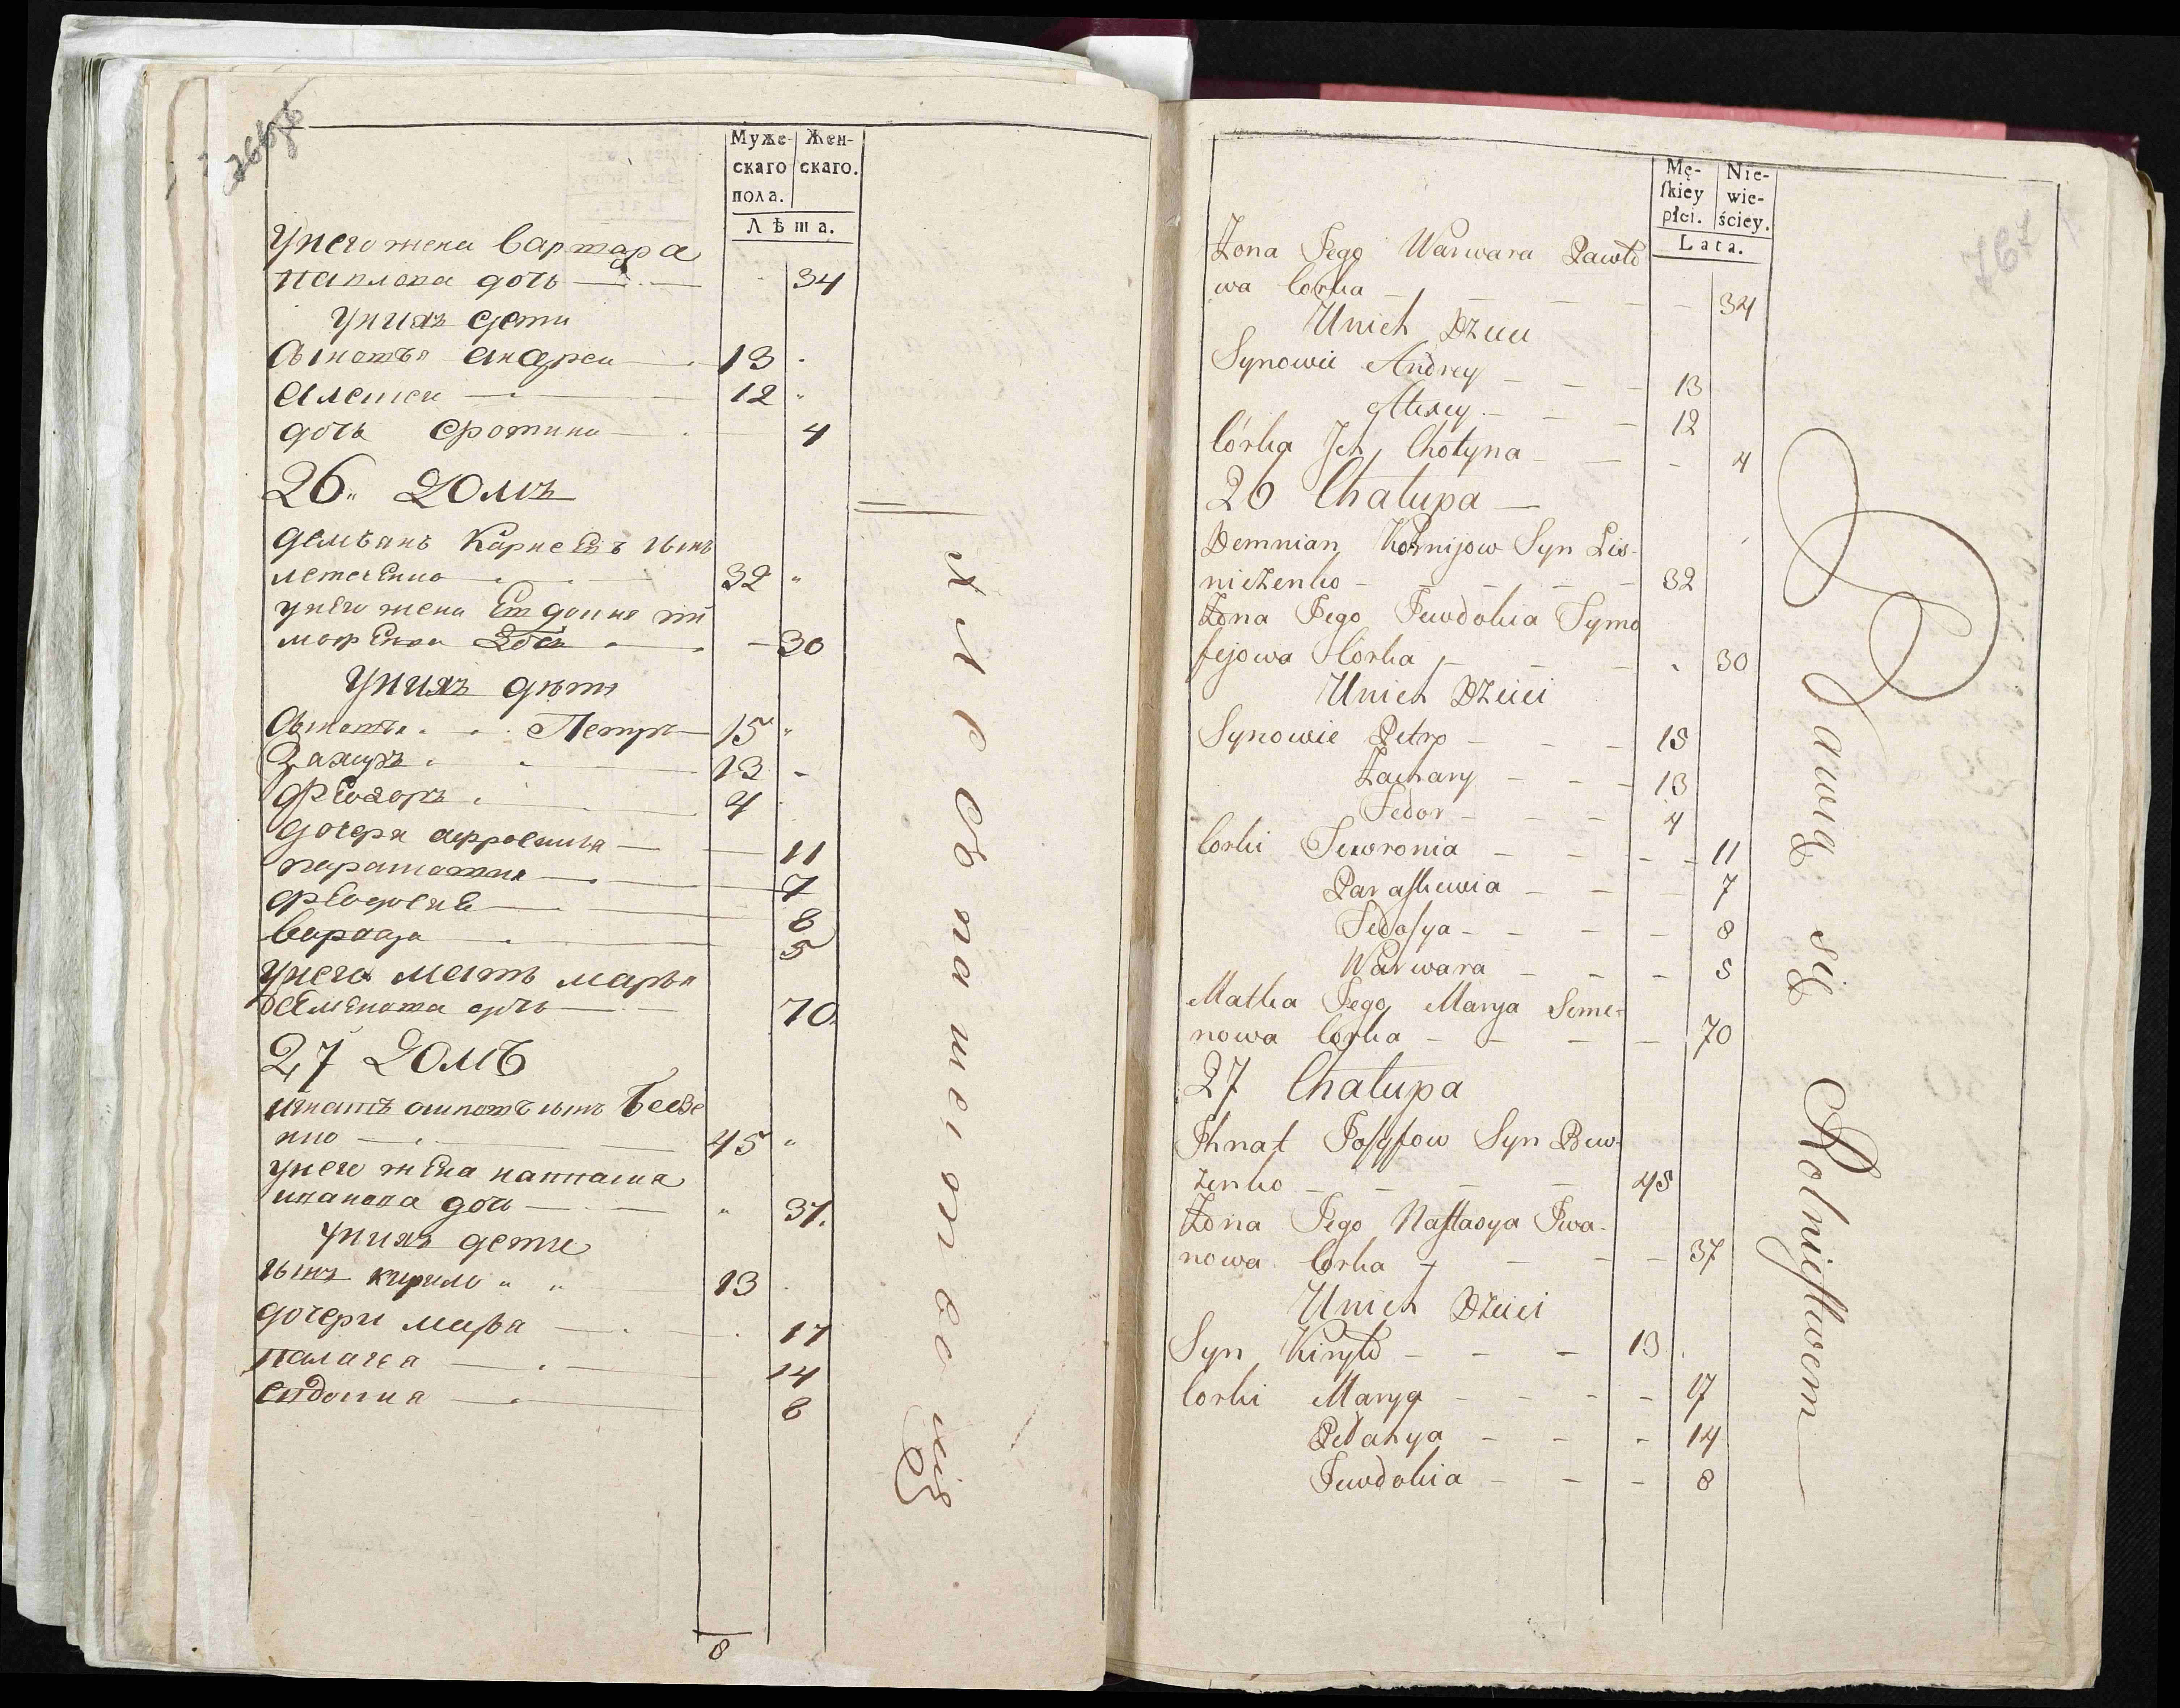 Муже-
скаго
пола.
Жен-
скаго.
Лѣта.
У него жена варвара
павлова дочь 34
У них дети
Сыновья андреи 13
Алексеи 12
дочь 4
26 Домъ
Демъянъ Карнеевъ сынъ
32
У него жена Евдокия ти
мофеева дочь 30
У них дѣти
Сыновья Петръ 15
Захаръ 13
Феодоръ 4
дочери 11
7
8
варвара 5
У него мать марья
Семенова дочь 70
27 Домъ
игнатъ сынъ
45
У него жена настасия
иванова дочь 37
У них дети
сынъ кирило 13
дочери марья 17
палагея 14
евдокия 8
8
767
Mę-
ſkiey
płci.
Nie-
wie-
ściey.
Lata.
Żona Jego Warwara Pawło
wa Corka 34
U nich Dzieci
Synowie Andrey 13
Alexey 12
Córka Ich Chotyna 4
26 Chałupa
Demnian Kornijow Syn Lis-
niczenko 32
Żona Jego Jewdokia Tymo
fejowa Corka 30
U nich Dzieci
Synowie Petro 15
Zachary 13
Fedor 4
Corki Fewronia 11
Paraſkewia 7
Fedoſya 8
Warwara 5
Matka Jego Marya Seme-
nowa Corka 70
27 Chałupa
Ihnat Joſyfow Syn Bew-
zenko 45
Żona Jego Naſtasya Iwa-
nowa Corka 37
U nich Dzieci
Syn Kiryło 13
Corki Marya 17
Pelahya 14
Jewdokia 8
Bawią się Rolnictwem